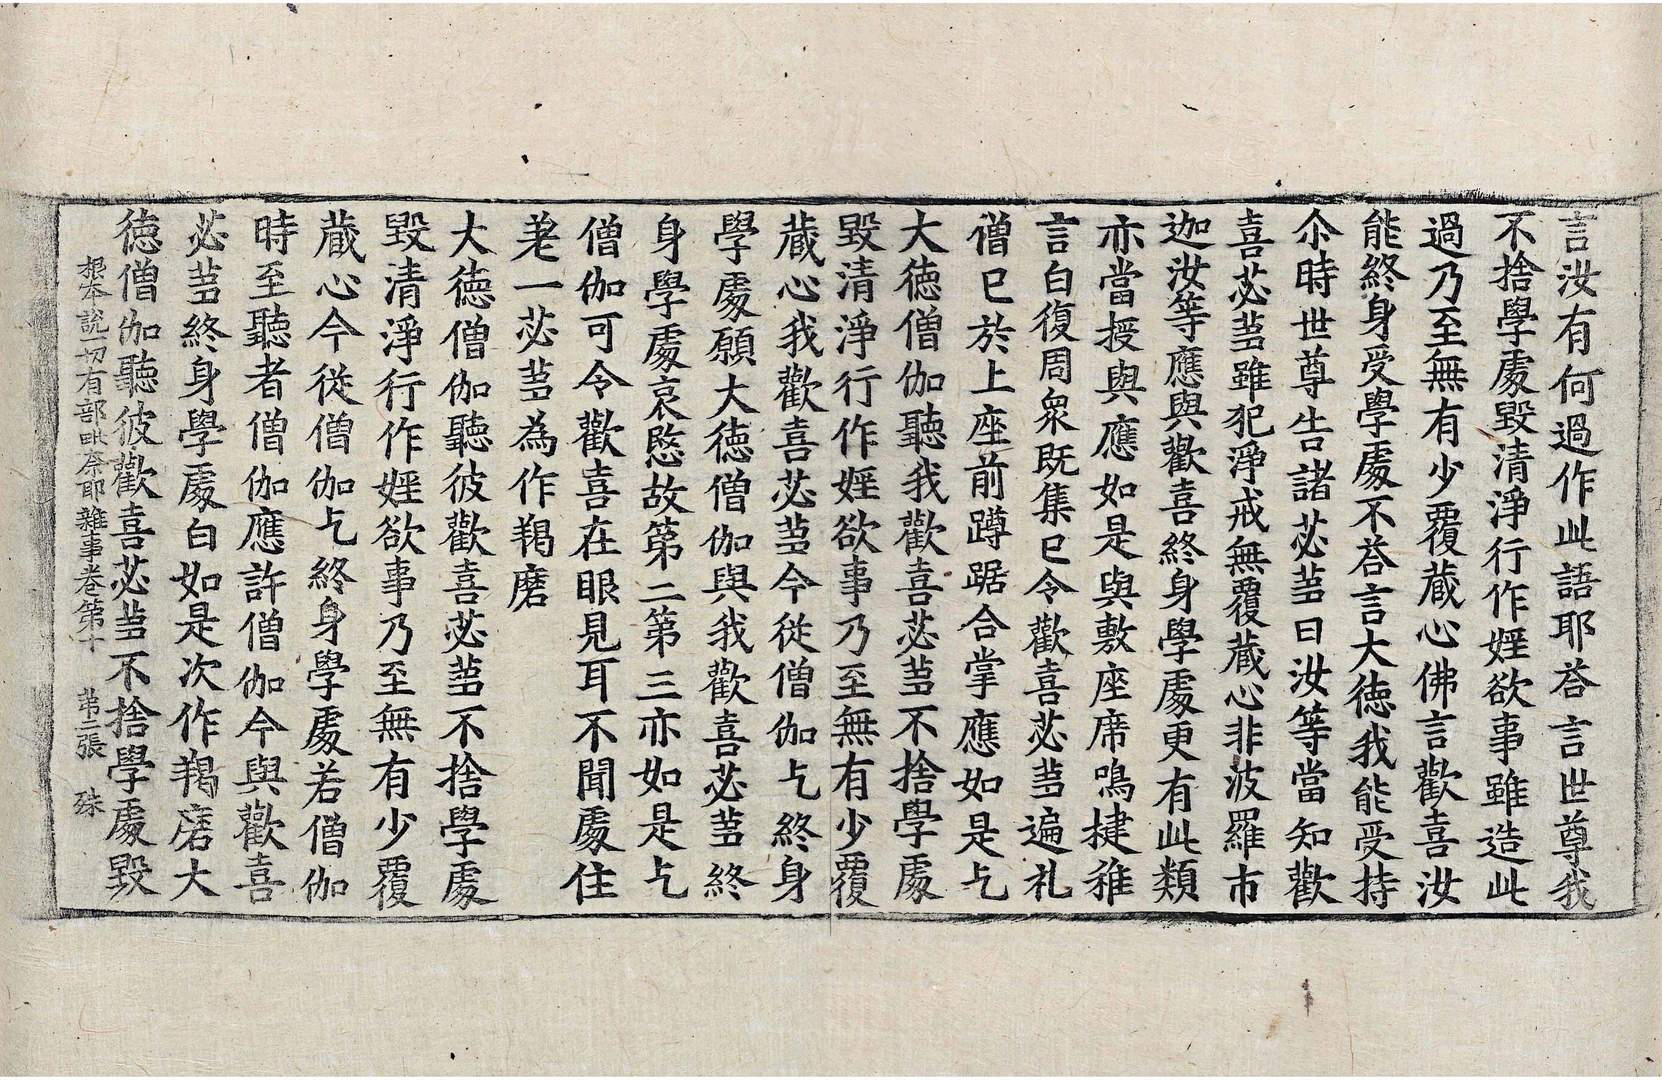 言汝有何過作此語耶荅言世尊我
不捨學處毀清淨行作婬欲事雖造此
過乃至無有少覆藏心佛言歡喜汝
能終身受學處不荅言大徳我能受持
尒時世尊告諸苾蒭曰汝等當知歡
喜苾蒭雖犯淨戒無覆藏心非波羅市
迦汝等應與歡喜終身學處更有此類
亦當授與應如是與敷座席鳴揵稚
言白復周衆既集已令歡喜苾蒭遍礼
僧已於上座前蹲踞合掌應如是乞
大徳僧伽聽我歡喜苾蒭不捨學處
毀清淨行作婬欲事乃至無有少覆
藏心我歡喜苾蒭今從僧伽乞終身
學處願大徳僧伽與我歡喜苾蒭終
身學處哀愍故第二第三亦如是乞
僧伽可令歡喜在眼見耳不聞處住
差一苾蒭為作羯磨
大徳僧伽聽彼歡喜苾蒭不捨學處
毀清淨行作婬欲事乃至無有少覆
藏心今從僧伽乞終身學處若僧伽
時至聽者僧伽應許僧伽今與歡喜
苾蒭終身學處白如是次作羯磨大
徳僧伽聽彼歡喜苾蒭不捨學處毀
根本說一切有部毗奈耶雜事卷第十 第二張 殊